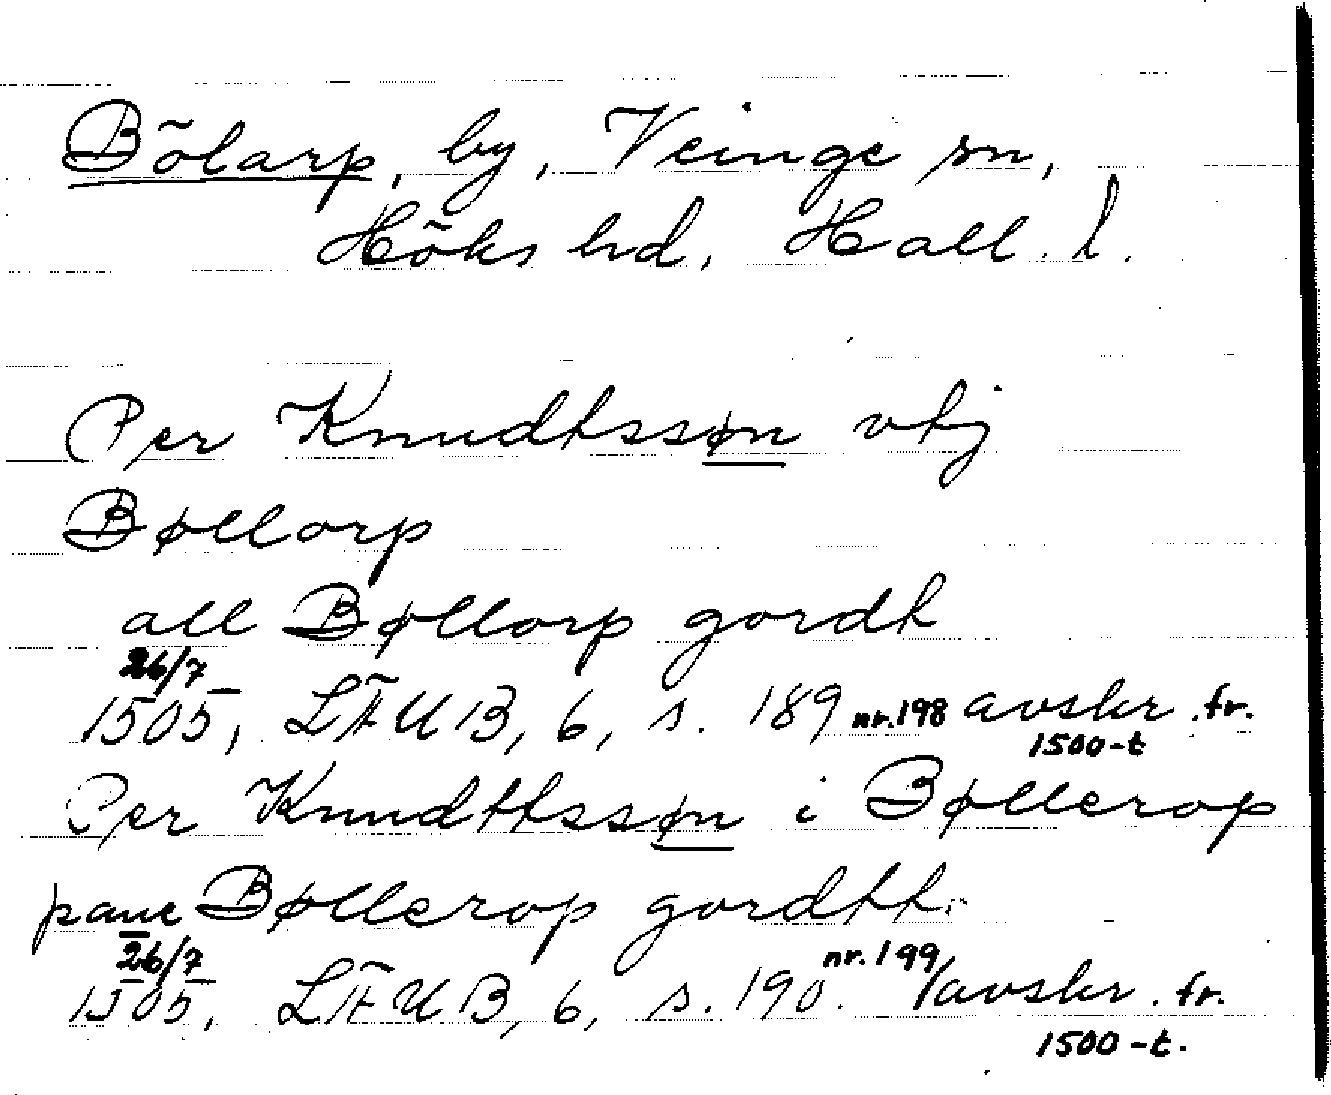 Bölarp, by, Veinge sn,
Höks hd, Hall. l.
Per Knudtssøn vtj
Bøllorp
all Bøllorp gordt
26/7
1505, LÄUB, 6, s. 189 nr.198 avskr. fr.
1500-t
Per Knudttssøn i Bøllerop
paue Bøllerop gordtt.
26/7 nr. 199
1505, LÄUB, 6, s. 190. /avskr. fr.
1500-t.